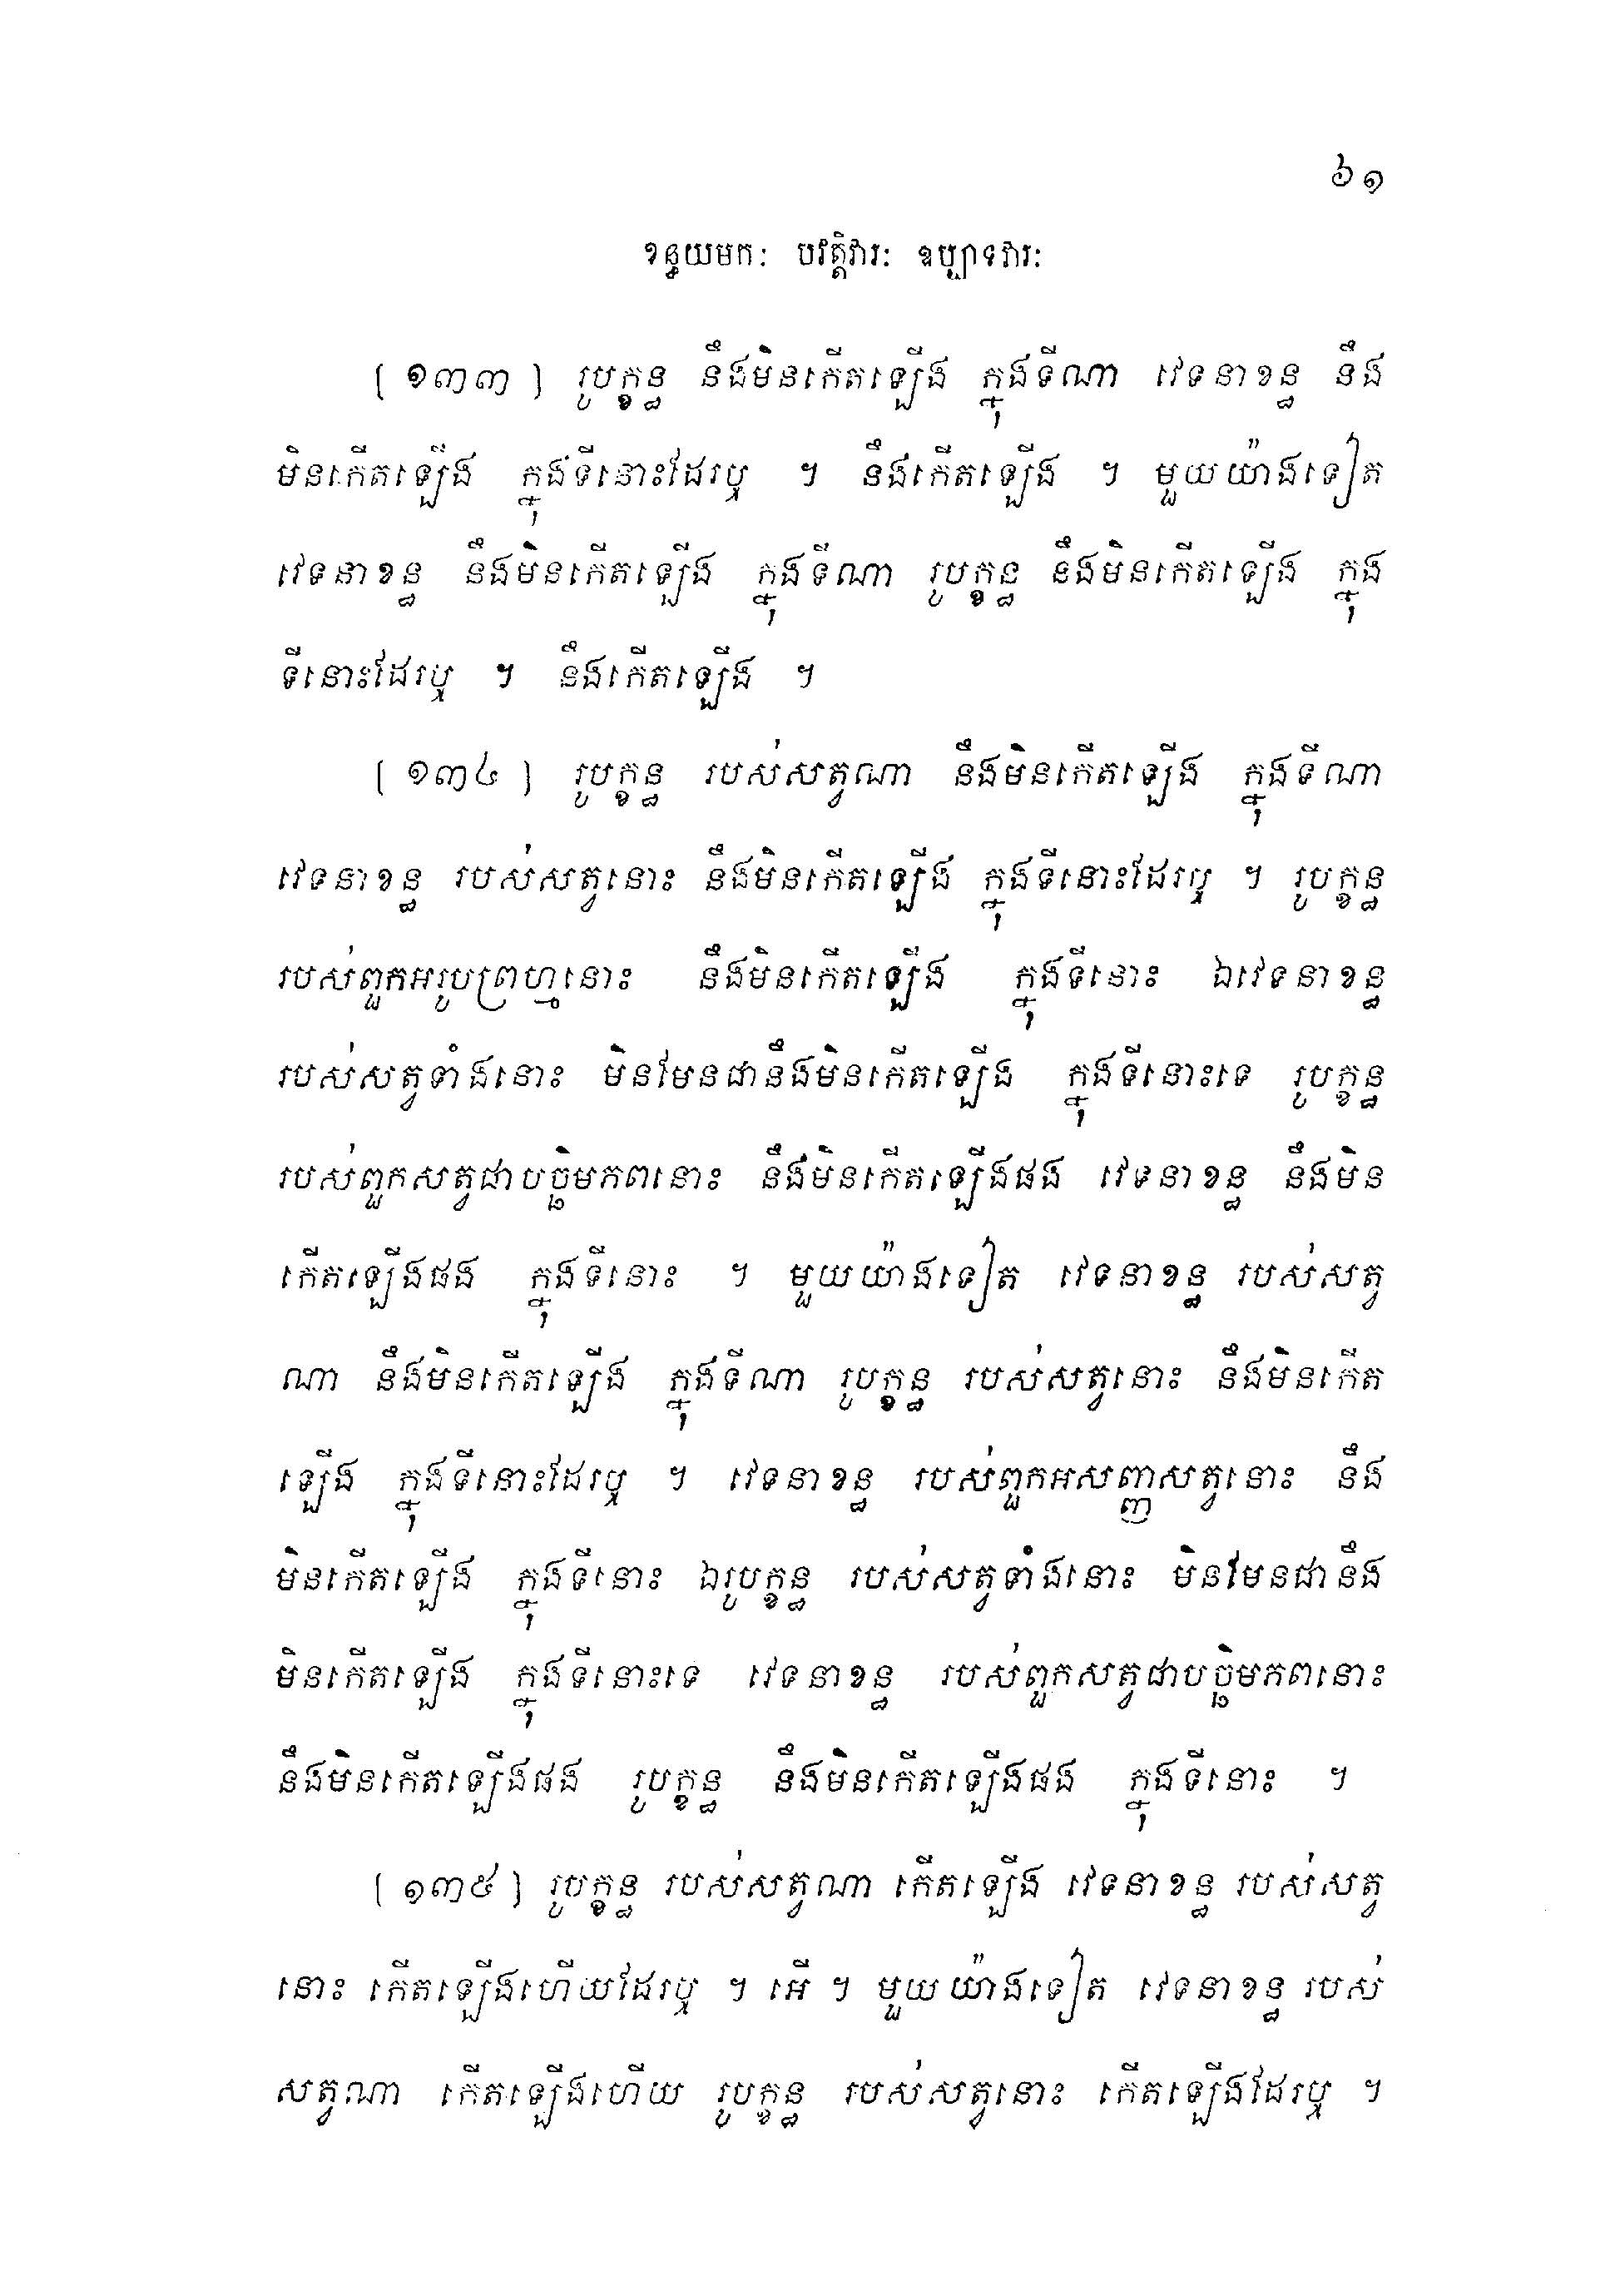 ៦១
ខន្ធយមកៈ បវត្តិវារៈ ឧប្បាទវារៈ
[ ១៣៣ ] រូបក្ខន្ធ នឹងមិនកើតឡើង ក្នុងទីណា វេទនាខន្ធ នឹង
មិនកើតឡើង ក្នុងទីនោះដែរឬ ។ នឹងកើតឡើង ។ មួយយ៉ាងទៀត
វេទនាខន្ធ នឹងមិនកើតឡើង ក្នុងទីណា រូបក្ខន្ធ នឹងមិនកើតឡើង ក្នុង
ទីនោះដែរឬ ។ នឹងកើតឡើង ។
[ ១៣៤ ] រូបក្ខន្ធ របស់សត្វណា នឹងមិនកើតឡើង ក្នុងទីណា
វេទនាខន្ធ របស់សត្វនោះ នឹងមិនកើតឡើង ក្នុងទីនោះដែរឬ ។ រូបក្ខន្ធ
របស់ពួកអរូបព្រហ្មនោះ នឹងមិនកើតឡើង ក្នុងទីនោះ ឯវេទនាខន្ធ
របស់សត្វទាំងនោះ មិនមែនជានឹងមិនកើតឡើង ក្នុងទីនោះទេ រូបក្ខន្ធ
របស់ពួកសត្វជាបច្ឆិមភពនោះ នឹងមិនកើតឡើងផង វេទនាខន្ធ នឹងមិន
កើតឡើងផង ក្នុងទីនោះ ។ មួយយ៉ាងទៀត វេទនាខន្ធ របស់សត្វ
ណា នឹងមិនកើតឡើង ក្នុងទីណា រូបក្ខន្ធ របស់សត្វនោះ នឹងមិនកើត
ឡើង ក្នុងទីនោះដែរឬ ។ វេទនាខន្ធ របស់ពួកអសញ្ញសត្វនោះ នឹង
មិនកើតឡើង ក្នុងទីនោះ ឯរូបក្ខន្ធ របស់សត្វទាំងនោះ មិនមែនជានឹង
មិនកើតឡើង ក្នុងទីនោះទេ វេទនាខន្ធ របស់ពួកសត្វជាបច្ឆិមភពនោះ
នឹងមិនកើតឡើងផង រូបក្ខន្ធ នឹងមិនកើតឡើងផង ក្នុងទីនោះ ។
[ ១៣៥ ] រូបក្ខន្ធ របស់សត្វណា កើតឡើង វេទនាខន្ធ របស់សត្វ
នោះ កើតឡើងហើយដែរឬ ។ អើ ។ មួយយ៉ាងទៀត វេទនាខន្ធ របស់
សត្វណា កើតឡើងហើយ រូបក្ខន្ធ របស់សត្វនោះ កើតឡើងដែរឬ ។